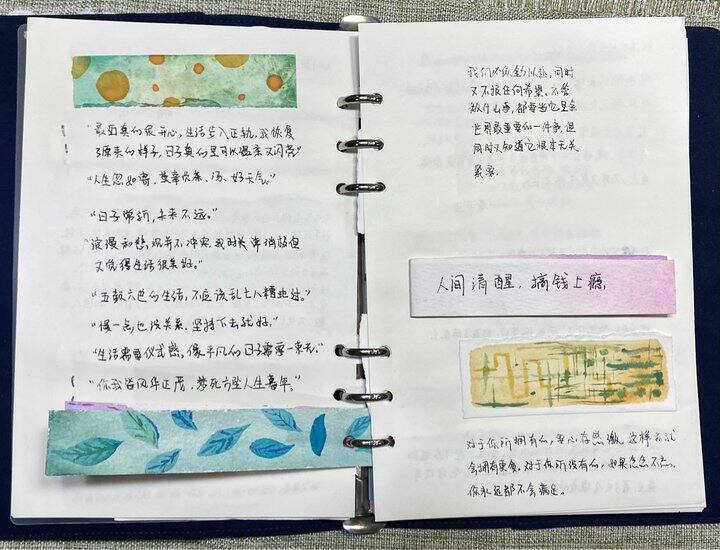 “最近真的很开心，生活步入正轨，我恢复
了原来的样子，日子真的是可以温柔又闪亮”
“人生忽如寄，莫辜负茶、汤、好天气。”
“日子常新，未来不远。”
“浪漫和愁 并不冲突 我时常消沉但
又觉得生活很美好。”
“五颜六色的生活，不应该乱七八糟地过。”
“慢一点也没关系，坚持下去就好。”
“生活需要仪式感，像平凡的日子需要一束光。”
“你我皆风华正茂，梦死方坠人生暮年。”
我们必须全力以赴，同时
又不抱任何希望，不管
做什么事，都要当它是全
世界最重要的一件事，但
同时又知道它根本无关
紧要。
人间清醒，搞钱上瘾，
对于你所拥有的，要心存感激，这样你就
会拥有更多，对于你所没有的，如果念念不忘，
你永远都不会满足。